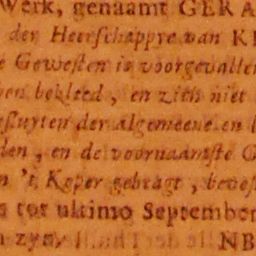 Werk, genaamt GERA
der Heerschappye van KE
e Gewesten is voorgevallen
en bekleed, en zich niet
esluyten der algemeene en
den, en de voornaamste G
n 't Koper gebragt, beves
s tot ultimo September
n zyn NB